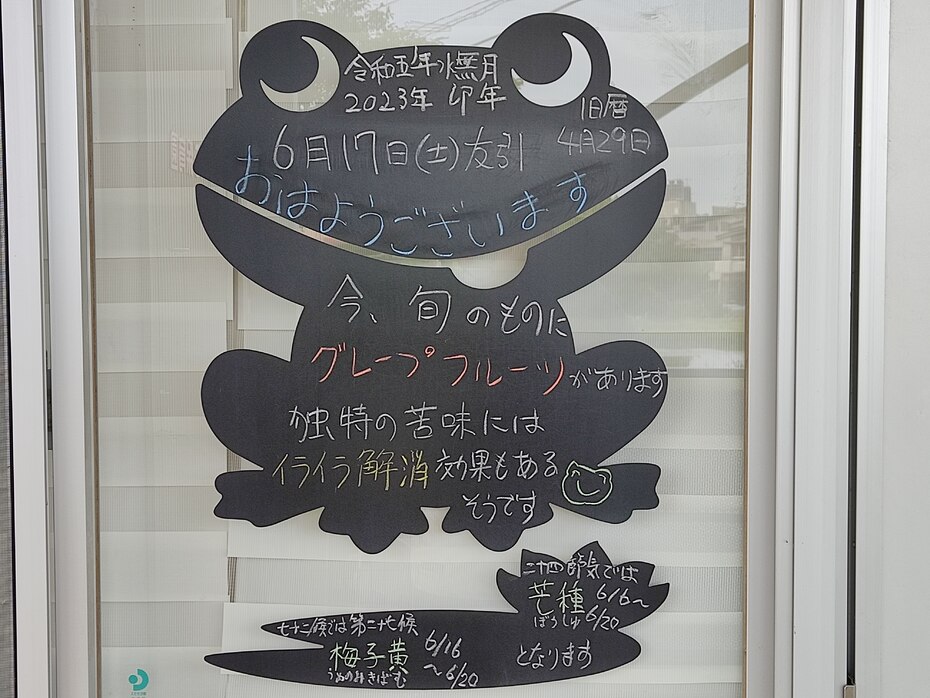 令和五年水無月
2023年 卯年
旧暦
4月29日
6月17日(土)友引
おはようございます
今、旬のものに
グレープフルーツがあります
独特の苦味には
イライラ解消効果もある
そうです
二十四節気では
芒種 6/6〜
ぼうしゅ 6/20
となります
七十二候では第二十七候
梅子黄 6/16
うめのみきばむ 〜6/20